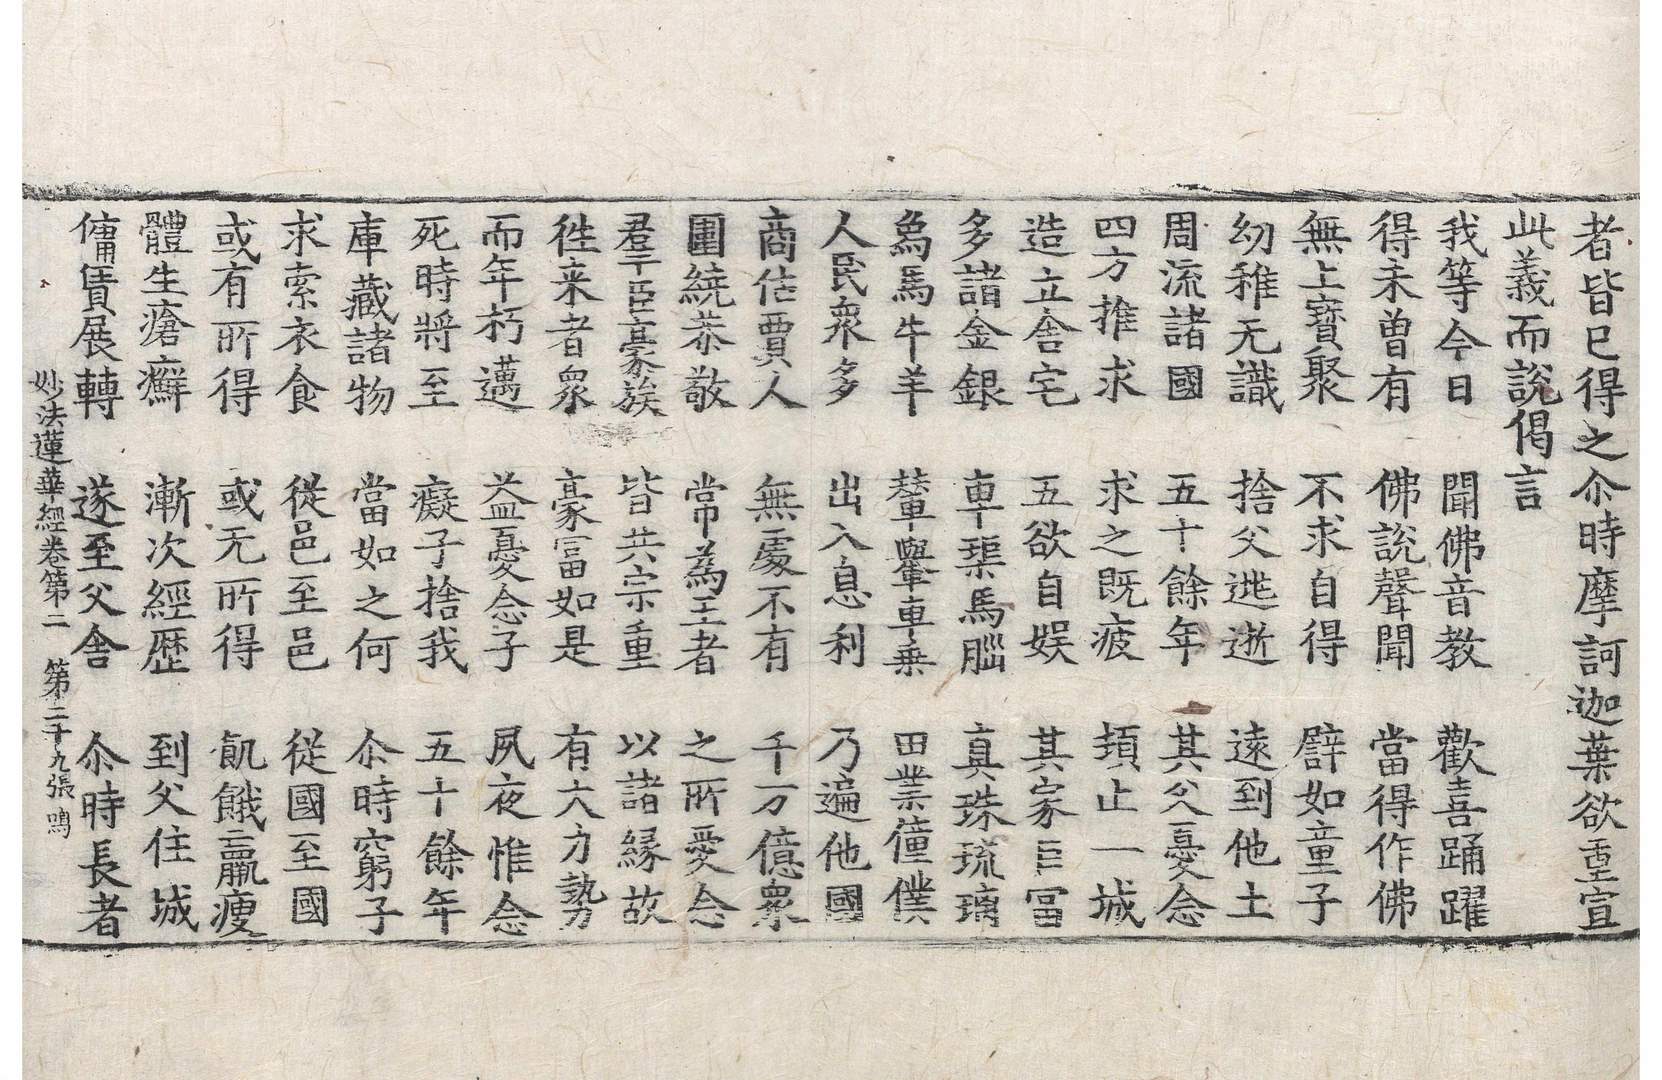 者皆已得之尒時摩訶迦葉欲重宣
此義而説偈言
我等今日 聞佛音教 歡喜踊躍
得未曾有 佛説聲聞 當得作佛
無上寶聚 不求自得 譬如童子
幼稚无識 捨父逃逝 遠到他土
周流諸國 五十餘年 其父憂念
四方推求 求之既疲 頓止一城
造立舍宅 五欲自娱 其家巨冨
多諸金銀 車璖馬腦 真珠琉璃
象馬牛羊 輦轝車乗 田業僮僕
人民衆多 出入息利 乃遍他國
商估賈人 無處不有 千万億衆
圍繞恭敬 常爲王者 之所愛念
羣臣豪族 皆共宗重 以諸縁故
徃来者衆 豪冨如是 有大力勢
而年朽邁 益憂念子 夙夜惟念
死時將至 癡子捨我 五十餘年
庫藏諸物 當如之何 尒時窮子
求索衣食 從邑至邑 從國至國
或有所得 或无所得 飢餓羸瘦
體生瘡癬 漸次經歷 到父住城
傭賃展轉 遂至父舍 尒時長者
妙法蓮華經卷第二 第二十九張 鳴